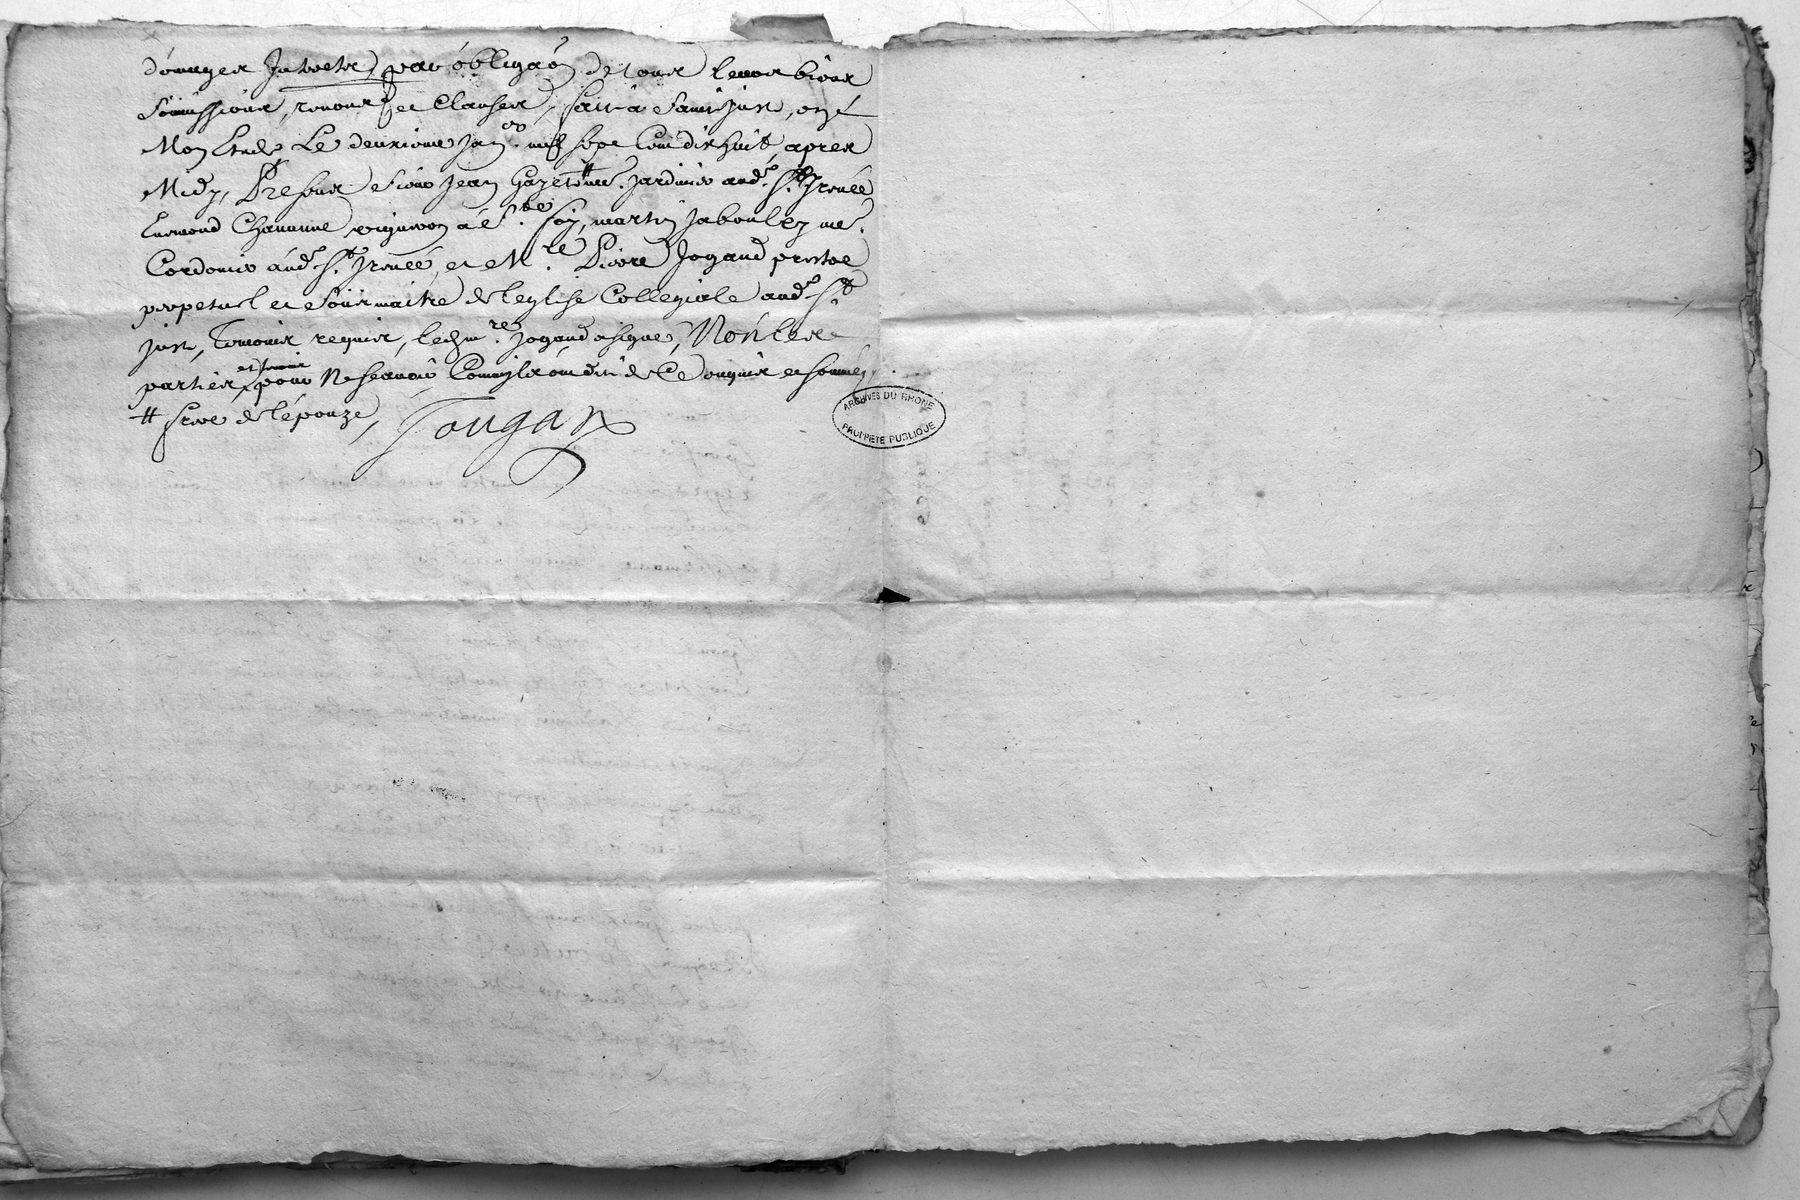 domages Interets, par obliga͠on de tous leurs biens
soumissions, renons et Clauses, fait à saint just, en
Mon Etude Le deuxieme jan.er mil sept Cent dix huit, apres
Midy, Presens sieur jean Gazet jardinier aud. St. Irenée
Enemond Chavanne vigneron a Ste. foy, martin jabouley me.
Cordonier aud. St. Irenée, et M.re Pierre Jogand prestre
perpetuel et de leglise Collegiale aud. St.
just, Temoins requis, led. m.re jogand a signé, Non les
parties, et temoins pour ne scavoir Comme ils ont dit de Ce enquis et sommés
# frere de lépouze, Jougan
ARCHIVES DU RHONE
PROPRIETE PUBLIQUE